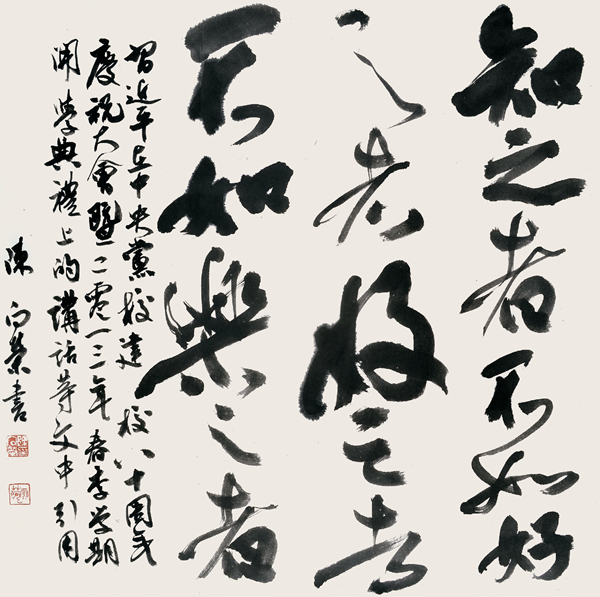 知之者不如好
之者好之者
不如樂之者
習近平在中央黨校建校八十周年
慶祝大會暨二零一三年春季學期
開學典禮上的講話等文中引用
陳榮書